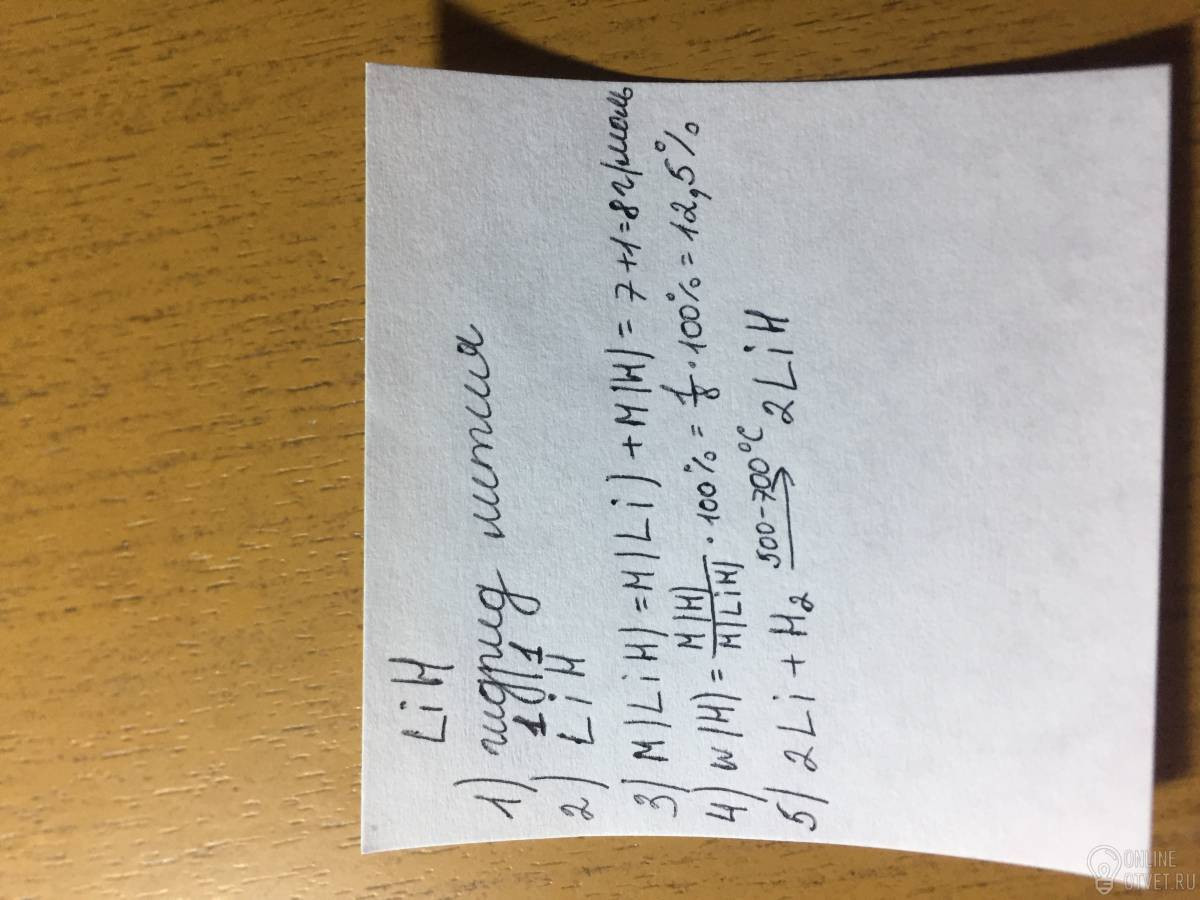 LiH
1) гидрид лития
1 1
2) LiH
3) M(LiH) = M(Li) + M(H) = 7 + 1 = 8 г/моль
4) w(H) = M(H)/M(LiH) · 100% = 1/8 · 100% = 12,5%
500-700°C
5) 2Li + H₂ → 2LiH
ONLINE
OTVET.RU